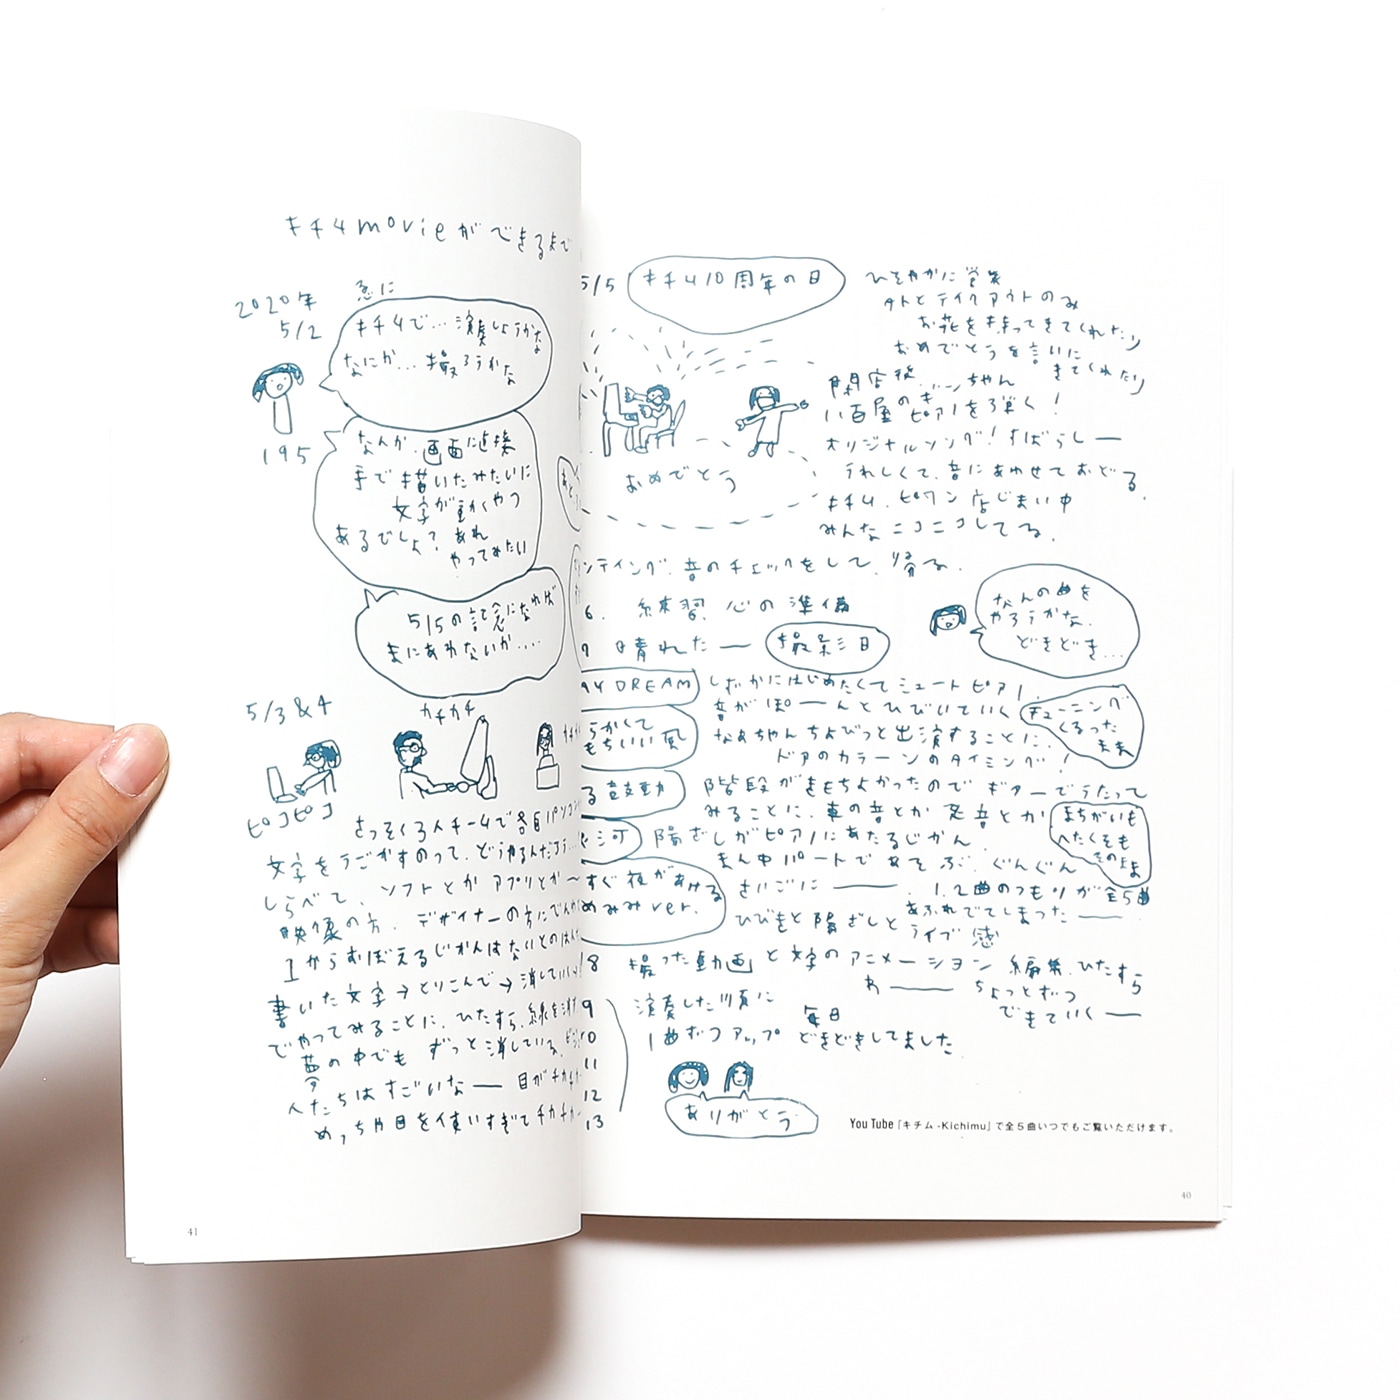 キチムmovieができるまで
2020年
5/2
急に
キチムで…演奏しようかな
なにか…撮ろうかな
195
なんか、画面に直接
手で描いたみたいに
文字が動くやつ
あるでしょ？あれ
やってみたい
5/5の記念になれば
まにあわないか....
5/3&4
カチカチ
ピコピコ
さっそく3人チームで各自パソコン
文字をうごかすのって、どうやるんだろう...
しらべて、ソフトとかアプリとか〜
映像の方、デザイナーの方にでんわ
1からおぼえるじかんはないとのはん
書いた文字→とりこんで→消していく
でやってみることに、ひたすら、線を消す
夢の中でもずっと消している、
人たちはすごいなー 目がチカチカ
めっちゃ目を使いすぎてチカチカ
41
5/5
キチム10周年の日
ひそやかに営業
外とテイクアウトのみ
お花を持ってきてくれたり
おめでとうを言いに
きてくれたり
閉店後、
い百屋のき...ンちゃん
ピアノを弾く!
オリジナルソング! すばらしー
うれしくて、音にあわせておどる、
キチム、ピワン 店じまい中
みんなニコニコしてる、
おめでとう
ンティング、音のチェックをして、帰る、
6. 練習、心の準備
なんの曲を
やろうかな、
どきどき...
9 日晴れたー
撮影日
AY DREAM
しずかにはじめたくてミュートピアノ、
音がぽーんとひびいていく
チューニング
くるった
まま
らかくて
もちいい風
なぁちゃんちょびっと出演することに、
ドアのカラーンのタイミング!
る鼓動
階段がきもちよかったのでギターでうたって
みることに、車の音とか発音とか
まちがいも
へたくそも
そのまま
河
陽ざしがピアノにあたるじかん
まん中パートであそぶ、ぐんぐん
すぐ夜があける
めみみver.
さいごにー、1、2曲のつもりが全5曲
あふれでてしまったー
ひびきと陽ざしとライブ感
8 撮った動画と文字のアニメーション 編集、ひたすら
わー ちょっとずつ
できていくー
9
10
11
12
13
演奏した順に
1曲ずつアップ
毎日
どきどきしてました
ありがとう
You Tube「キチム -Kichimu」で全5曲いつでもご覧いただけます。
40